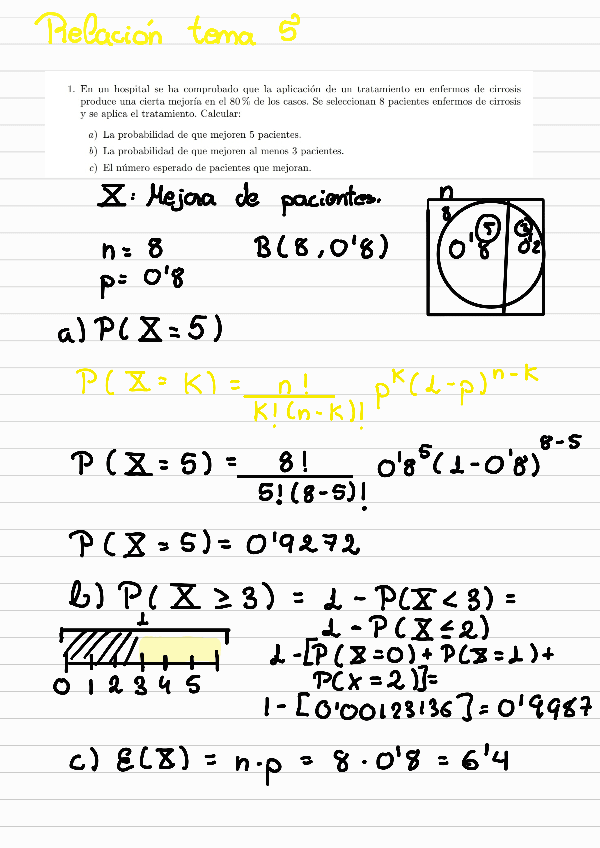 Relación tema 5
1. En un hospital se ha comprobado que la aplicación de un tratamiento en enfermos de cirrosis
produce una cierta mejoría en el 80 % de los casos. Se seleccionan 8 pacientes enfermos de cirrosis
y se aplica el tratamiento. Calcular:
a) La probabilidad de que mejoren 5 pacientes.
b) La probabilidad de que mejoren al menos 3 pacientes.
c) El número esperado de pacientes que mejoran.
X: Mejora de pacientes.
n
8
5
3
0'8
0'2
n = 8 B(8, 0'8)
p = 0'8
a) P(X = 5)
P(X = K) = n! / K!(n-K)! p^K (1-p)^n-K
P(X = 5) = 8! / 5!(8-5)! 0'8^5 (1-0'8)^8-5
P(X = 5) = 0'9272
b) P(X ≥ 3) = 1 - P(X < 3) =
1 - P(X ≤ 2)
1
1 - [P(X=0) + P(X=1) +
P(X = 2)] =
0 1 2 3 4 5
1 - [0'00123136] = 0'9987
c) E(X) = n·p = 8 · 0'8 = 6'4